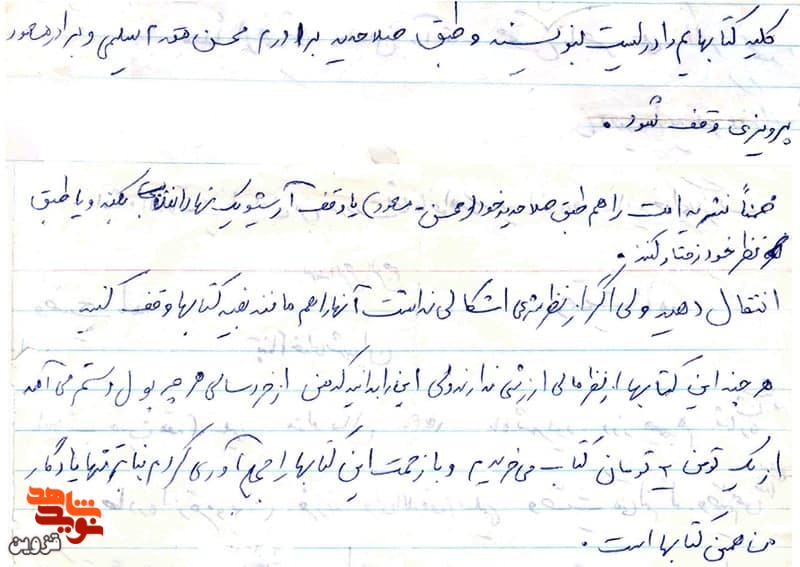 کلیه کتابهایم را در لیست بنویسند و طبق صلاحدید برادرم محسن مقدم سلیمی و برادر مسعود
پرویزی وقف شود.
ضمناً نشریه امت را هم طبق صلاحدید خود (محسن - مسعود) یا وقف آرشیو یک نهاد انقلابی بکنند و یا طبق
نظر خود رفتار کنند.
انتقال دهید ولی اگر از نظر شرعی اشکالی نداشت آنها را هم مانند بقیه کتابها وقف کنید
هر چند این کتابها از نظر مالی ارزشی ندارند ولی این را بدانید که من از خردسالی هر چه پول دستم می آمد
از یک تومن تا تومان کتاب می خریدم و با زحمت این کتابها را جمع آوری کردم بنابراین تنها یادگار
من همین کتابها است.
نوید شاهد
قزوین